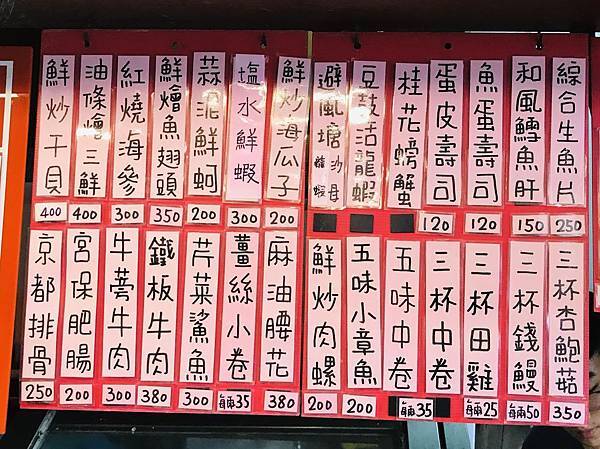 綜合生魚片
250
和風鱈魚肝
150
魚蛋壽司
120
蛋皮壽司
120
桂花螃蟹
豆鼓活龍蝦
避風塘
沙母
龍蝦
鮮炒海瓜子
200
塩水鮮蝦
300
蒜泥鮮蚵
200
鮮燴魚翅頭
350
紅燒海參
300
油條燴三鮮
400
鮮炒干貝
400
三杯杏鮑菇
350
三杯錢鰻
每兩50
三杯田雞
每兩25
三杯中卷
五味中卷
每兩35
五味小章魚
200
鮮炒肉螺
200
麻油腰花
380
薑絲小卷
每兩35
芹菜鯊魚
300
鐵板牛肉
380
牛蒡牛肉
300
宮保肥腸
200
京都排骨
250